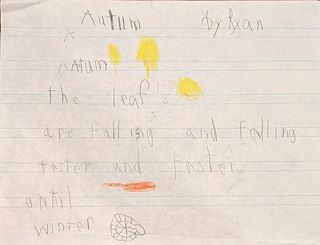 Autum by Ryan
Autum
the leaf's
are falling and falling
faster and faster
until
winter